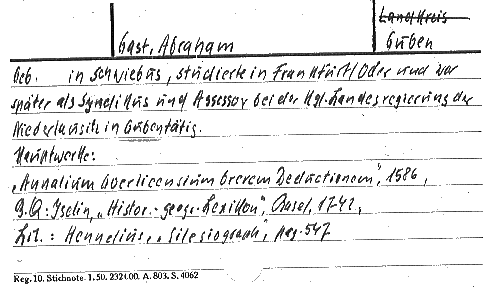 Landkreis
Gast, Abraham
Guben
Geb. in Schwiebus, studierte in Frankfurt/Oder und war
später als Syndikus und Assessor bei der Kgl. Landesregierung der
Niederlausitz in Guben tätig.
Hauptwerke:
„Annalium Goerlicensium brevem Deductionem", 1586,
G.Q: Iselin, „Histor.-geogr. Lexikon", Basel, 1742,
Lit.: Hennelius, „Silesiograph", pag. 547
Reg. 10. Stichnote. 1. 50. 2321.00. A. 803. S. 4062